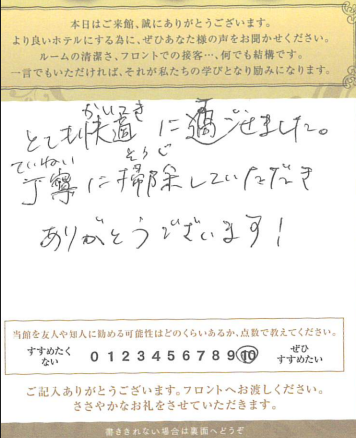 本日はご来館、誠にありがとうございます。
より良いホテルにする為に、ぜひあなた様の声をお聞かせください。
ルームの清潔さ、フロントでの接客…、何でも結構です。
一言でもいただければ、それが私たちの学びとなり励みになります。
かいてき
とても快適に過ごせました。
ていねい そうじ
丁寧に掃除していただき
ありがとうございます!
当館を友人や知人に勧める可能性はどのくらいあるか、点数で教えてください。
すすめたくない 0 1 2 3 4 5 6 7 8 9 10 ぜひすすめたい
ご記入ありがとうございます。フロントへお渡しください。
ささやかなお礼をさせていただきます。
書ききれない場合は裏面へどうぞ